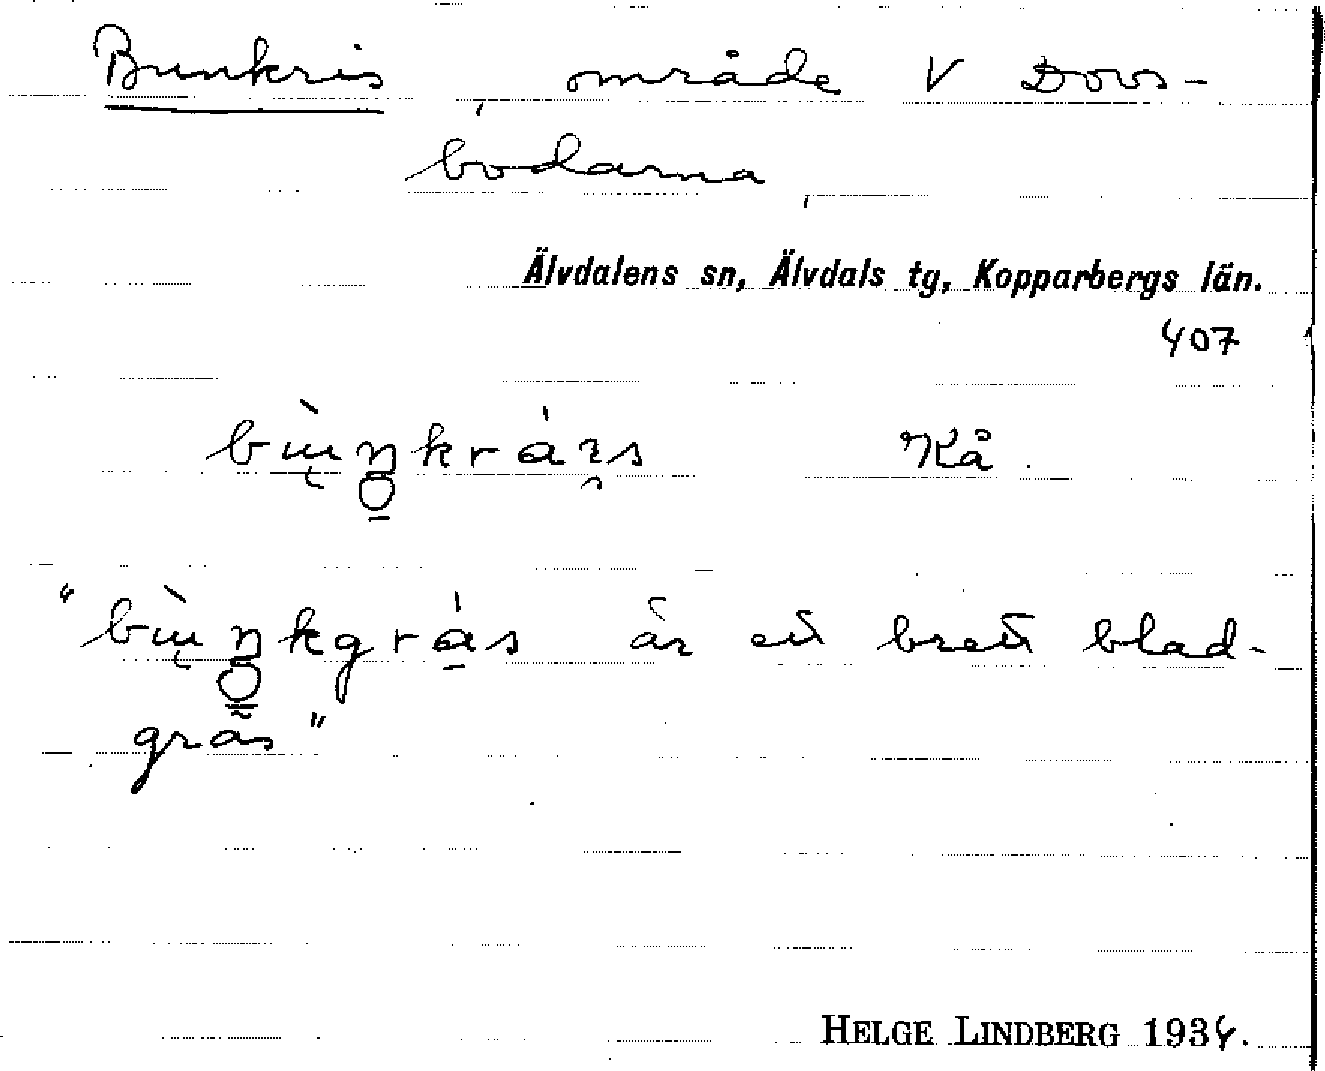 Bunkris, område V Dovs-
bodarna,
Älvdalens sn, Älvdals tg, Kopparbergs län.
407
Kå.
är ett brett blad-
gräs"
HELGE LINDBERG 1934.